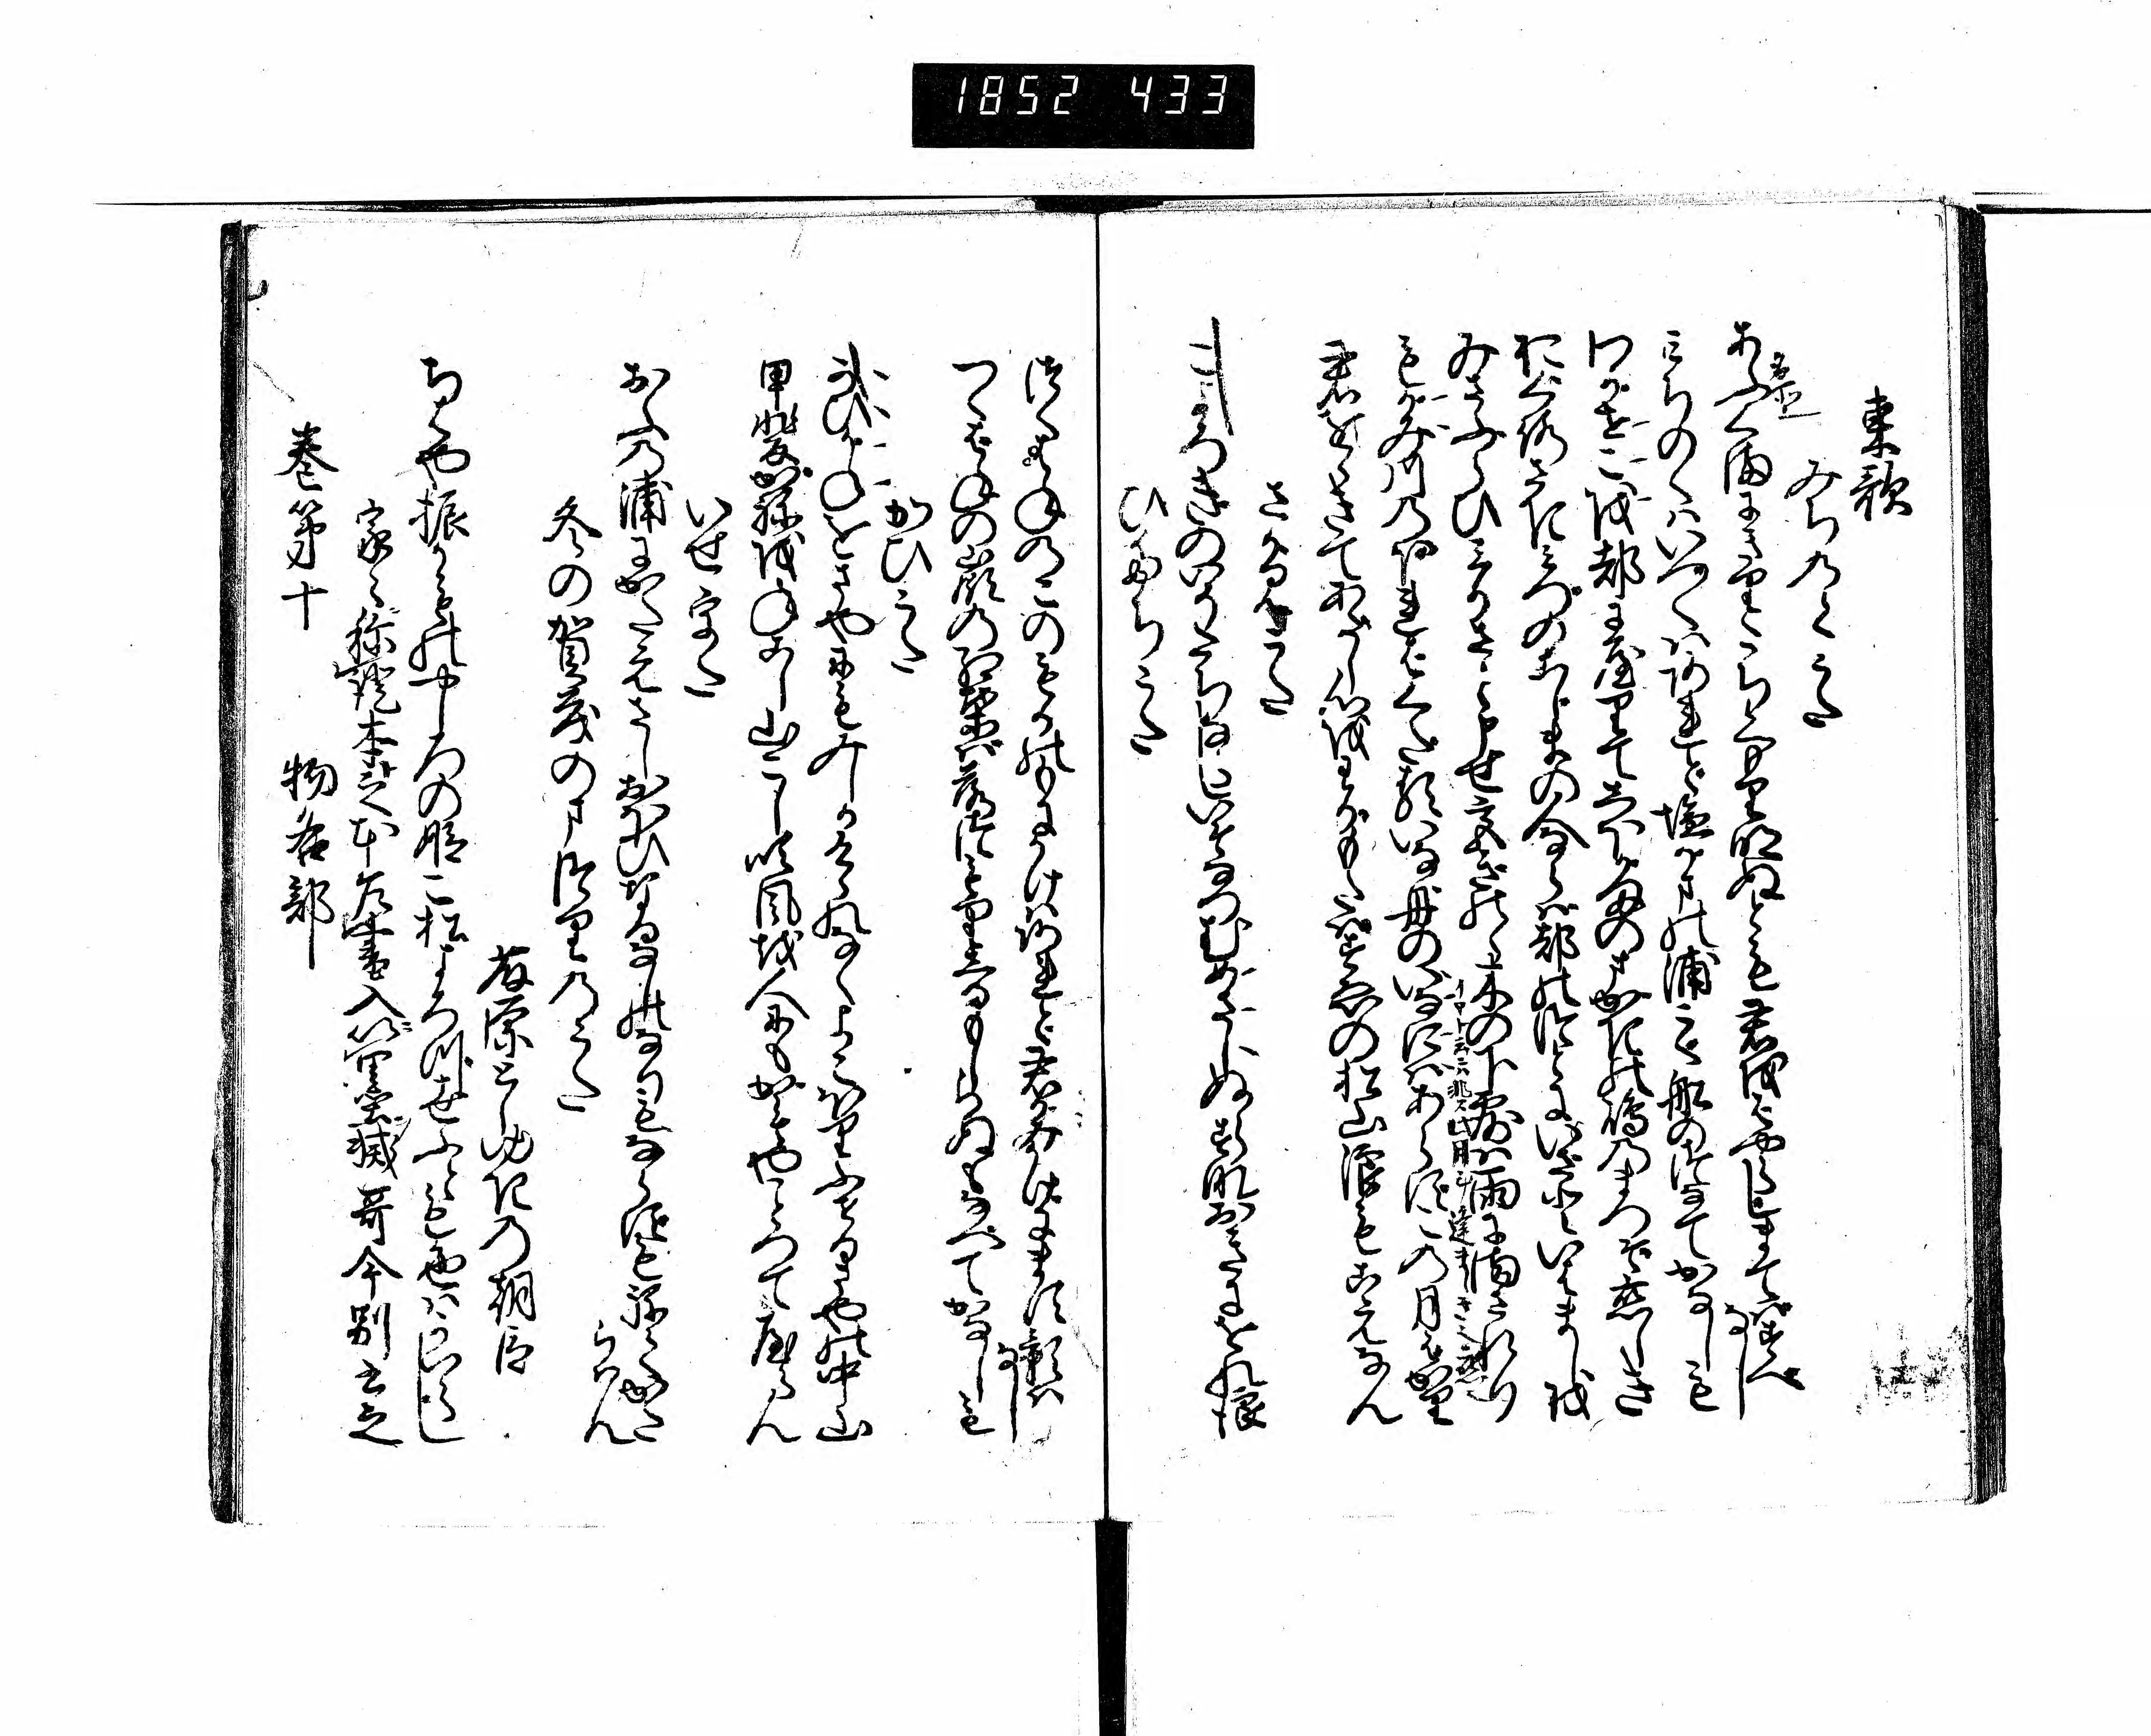 1852 433
東歌
みちのくうた
あふくまにきりたちわたり明ぬとも君をはやらしまてはすへ
なし
みちのくはいつくはあれと塩かまの浦こく舩のつなてかなしも
わかせこを都にやりてしほかまのまかきの嶋のまつそ恋しき
をくろさきみつのこしまの人ならは都のつとにいさといはまし を
みさふらひみかさと申せ宮きのゝ木の下露は雨にまされり
もかみ川のほれはくたるいな舟のいなにはあらすこの月はかり
君をゝきてあたし心をわかもたはすゑの松山浪もこえなん
さかみうた
こよろきのいそたちならしいそなつむめさしぬらすなおきにをれ浪
ひたちうた
つくはねのこのもかのもにかけはあれと君かみかけにます影は
なし
つくはねの嶺の紅葉は落つもりしるもしらぬもなへてかなしも
かひうた
かひかねをさやにもみしかけゝれなくよこほりふせるさやの中山
甲斐かねをねこし山こし吹風を人にもかもやことつてやらん
いせうた
おふの浦にかたえさしおほひなるなしのなりもならすもねてかた
らはん
冬の賀茂のまつりのうた
藤原としゆきの朝臣
ちはやふるかものやしろの姫こ松よろつ世ふとも色はかはらし
家々称證本之本乍書入以墨滅哥今別書之
巻第十
物名部